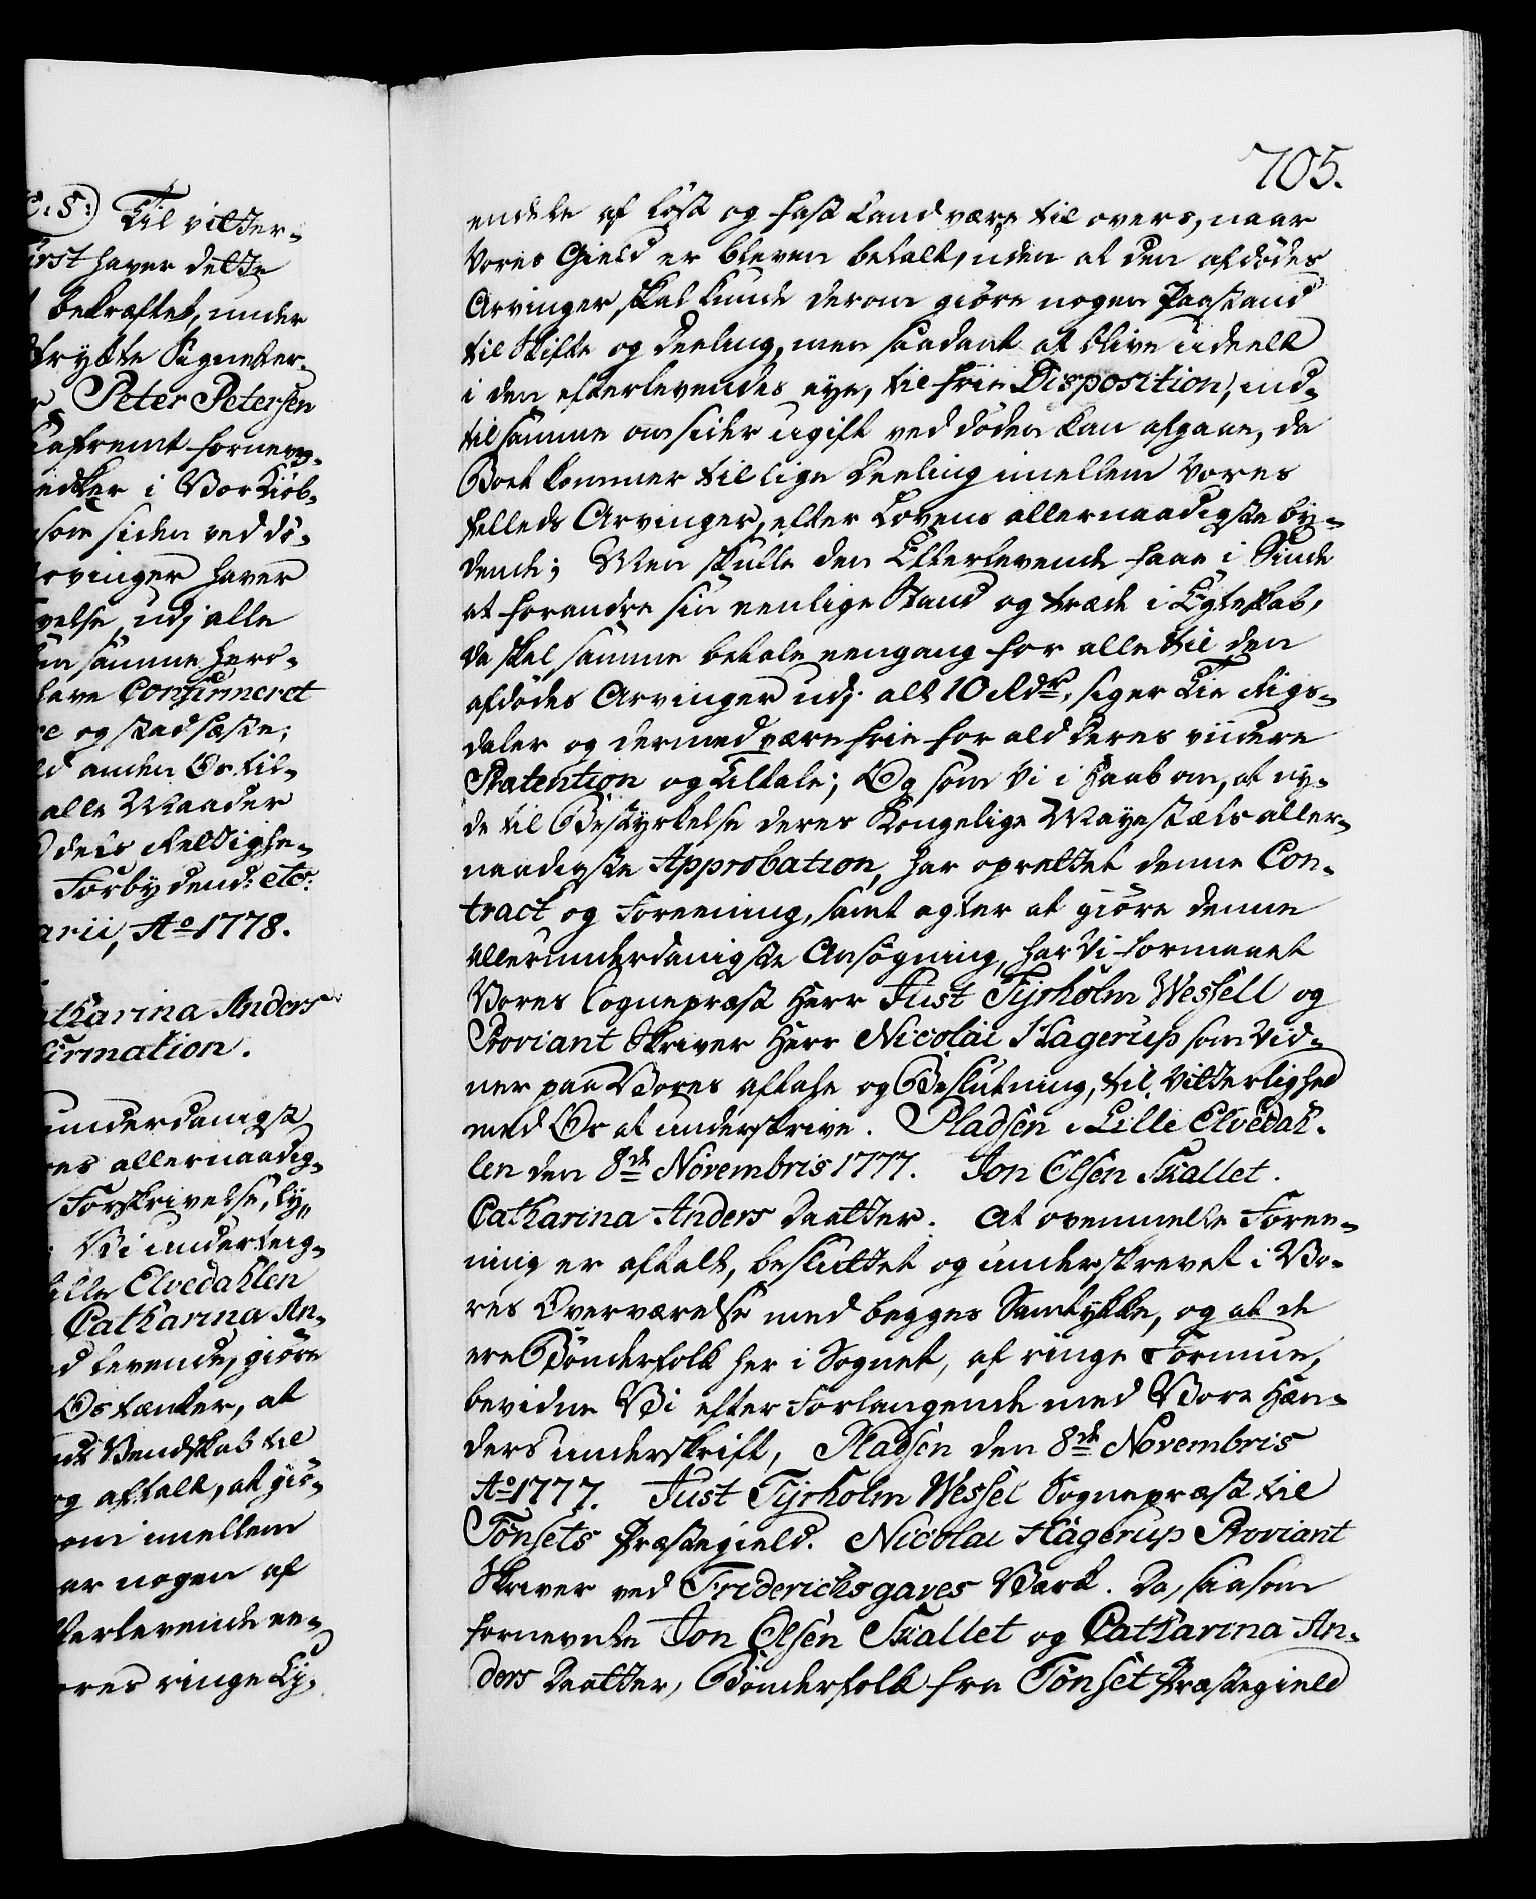 C: S:) Til vitter-
først haver dette
bekræftet, under
trykte Signeter.
Peter Petersen
Kafremt fornevn-
edker i Vor Kiøb-
som siden ved dø-
Arvinger haver
velse udj alle
samme her-
have Confirmeret
og stadfæste;
anden Os til-
alle Maader
dets Rettighe-
Forbydend: etc:
arii, Ao 1778.
Catharina Anders
firmation.
underdanigst
res allernaadig-
Forskrivelse, ly,,
Vi underteig-
Lille Elvedahlen
Catharina An-
levende, giøre
Os tænker, at
Vendskab til
og aftalt, at giø-
om imellem
ar nogen af
terlevende en-
res ringe Ey-
705.
endele af løst og fast Land være til overs, naar
vores Gield er bleven betalt, uden at den afdødes
Arvinger skal kunde derom giøre nogen Paastand
til Skifte og deeling, men saadant at blive udeelt
i den efterlevendes eye, til frie Disposition, ind-
til samme omsider ugift ved døden kan afgaae, da
Boet kommer til lige deeling imellem vores
felleds Arvinger, efter Lovens allernaadigste by-
dende; Men skulle den Efterlevende faae i Sinde
at forandre sin eenlige Stand og træde i Egteskab,
da skal samme betale eengang for alle til den
afdødes Arvinger udj alt 10 Rdr., siger Tie Rigs-
daler og dermed være frie for ald deres viidere
Prætention og Tiltale; Og som vi i Haab om, at ny-
de til Bestyrkelse deres Kongelige Mayestæts aller-
naadigste Approbation, har oprettet denne Con-
tract og Foreening, samt agter at giøre denne
allerunderdanigste Ansøgning, har vi formaaet
Vores Sognepræst Herr Just Tyrholm Wessell og
Proviant Skriver Herr Nicolai Hagerup som vid-
ner paa Vores aftale og Beslutning, til vitterlighed
med Os at underskrive. Pladsen i Lille Elvedah-
len den 8de Novembris 1777. Jon Olsen Skallet.
Catharina Anders Daatter. At ovenmelte Foree-
ning er aftalt, besluttet og underskrevet i Vo-
res Overværelse med begges Samtykke, og at de
ere Bønderfolk her i Sognet, af ringe Formue,
bevidne Vi efter Forlangende med Vore Hæn-
ders underskrift, Pladsen den 8de Novembris
Ao 1777. Just Tyrholm Wessel Sognepræst til
Tønsets Præstegield. Nicolai Hagerup Proviant
Skriver ved Friderichsgaves Værk. Da, saasom
fornevnte Jon Olsen Skallet og Catharina An-
ders Daatter, Bønderfolk fra Tønset Præstegield